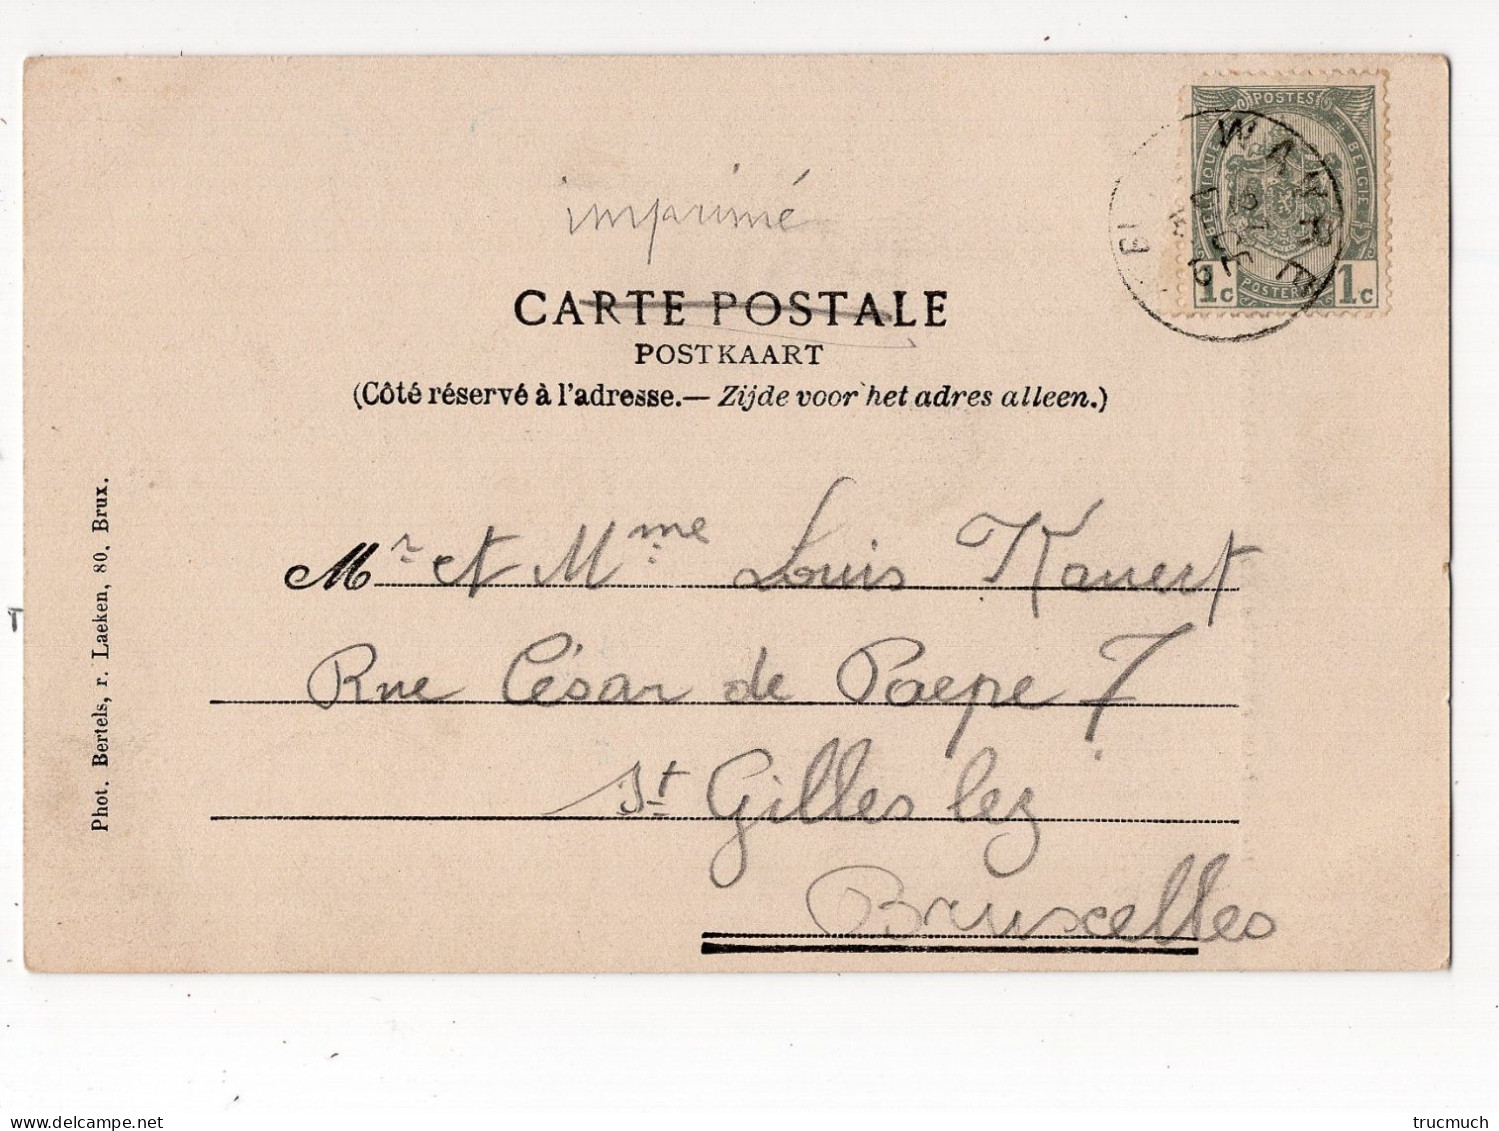 POSTES
BELGIQUE
BELGIE
1c 1c
WAVRE
imprimé
CARTE POSTALE
POSTKAART
(Côté réservé à l'adresse.— Zijde voor het adres alleen.)
Mr et Mme Louis Kauert
Rue César de Paepe 7
St Gilles lez
Bruxelles
Phot. Bertels, r. Laeken, 80, Brux.
www.delcampe.net
trucmuch